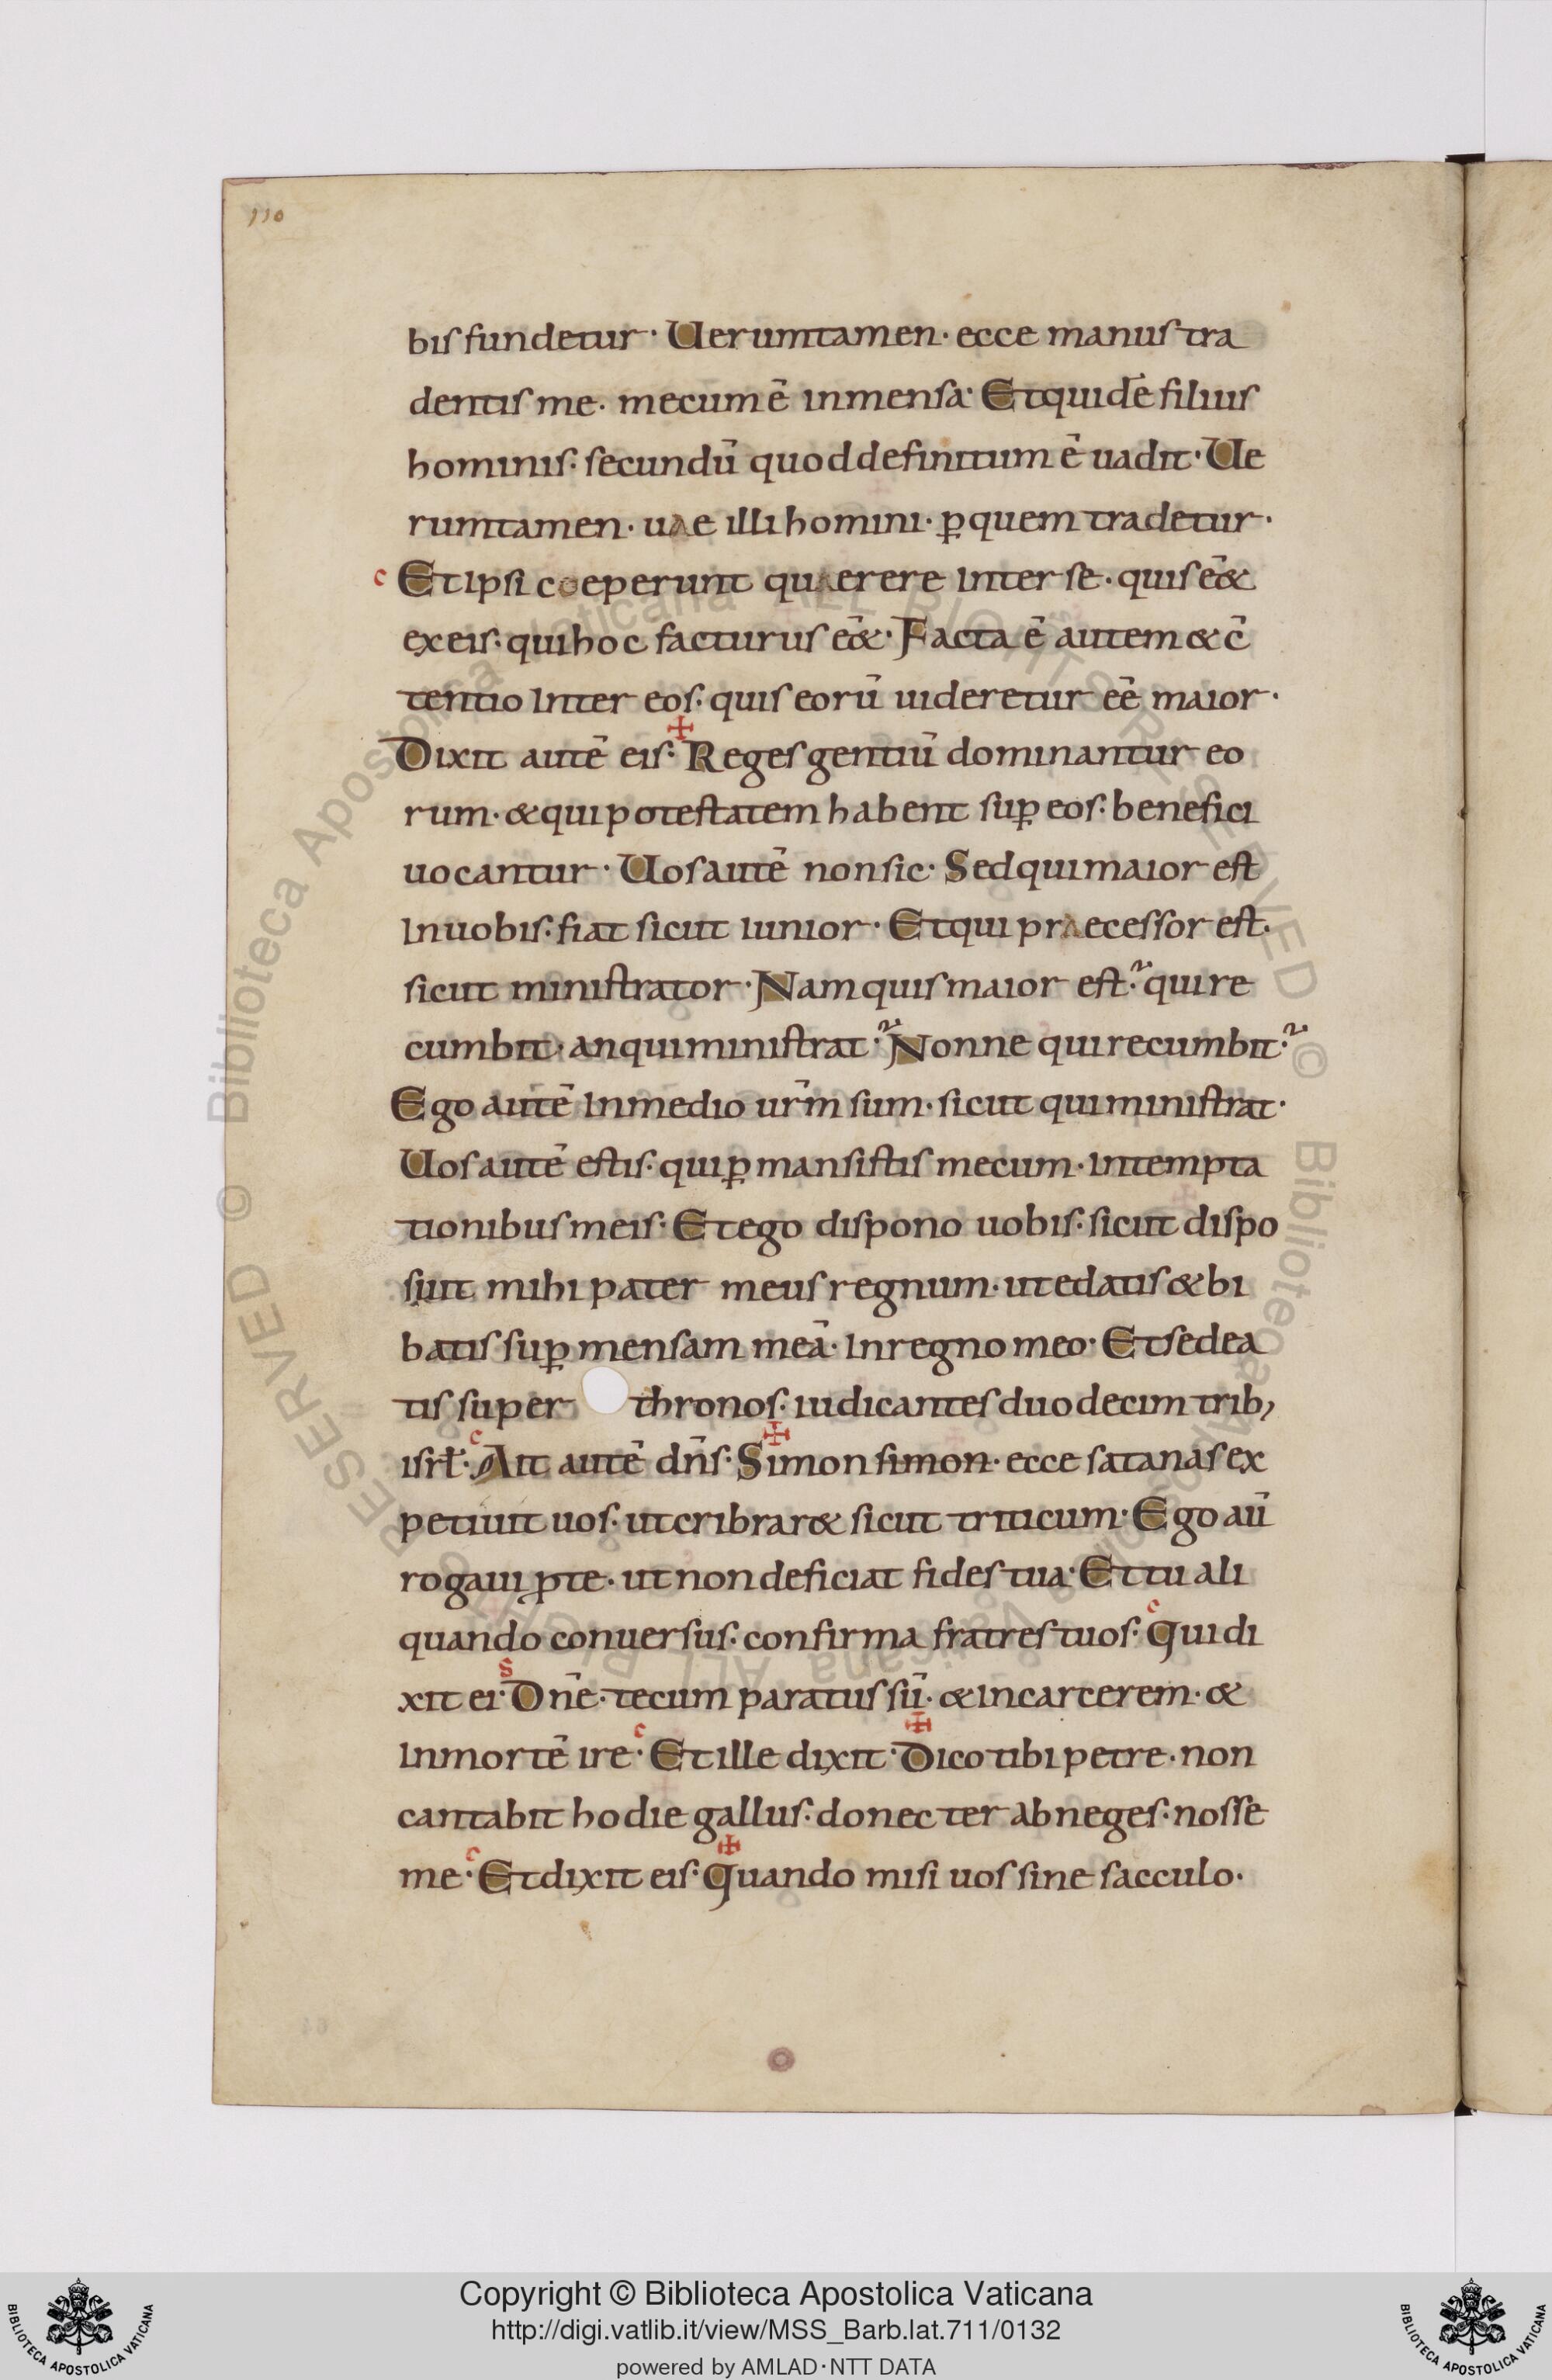 110
bis fundetur· Uerumtamen· ecce manus tra
dentis me· mecum ē in mensa· Et quidē filius
hominis· secundū quod definitum ē uadit· Ue
rumtamen· uae illi homini· ꝑ quem tradetur·
c Et ipsi coeperunt quaerere inter se· quis eē&
ex eis· qui hoc facturus eē&· Facta ē autem & c̄
tentio inter eos· quis eorū uideretur eē maior·
Dixit autē eis· ✠ Reges gentiū dominantur eo
rum· & qui potestatem habent suꝑ eos· benefici
uocantur· Uos autē non sic· Sed qui maior est
in uobis· fiat sicut iunior· Et qui praecessor est·
sicut ministrator· Nam quis maior est· qui re
cumbit· an qui ministrat· Nonne qui recumbit·
Ego autē in medio ur̄m sum· sicut qui ministrat·
Uos autē estis· qui ꝑmansistis mecum· in tempta
tionibus meis· Et ego dispono uobis· sicut dispo
suit mihi pater meus regnum· ut edatis & bi
batis suꝑ mensam meā· in regno meo· Et sedea
tis super thronos· iudicantes duodecim trib;
isrl̄· c Ait autē dn̄s· ✠ Simon simon· ecce satanas ex
petiuit uos· ut cribrar& sicut triticum· Ego aū
rogaui ꝓ te· ut non deficiat fides tua· Et tu ali
quando conuersus· confirma fratres tuos· c Qui di
xit ei· s Dn̄e· tecum paratus sū· & in carcerem· &
in mortē ire· c Et ille dixit· ✠ Dico tibi petre· non
cantabit hodie gallus· donec ter abneges· nosse
me· c Et dixit eis· ✠ Quando misi uos sine sacculo·
© Biblioteca Apostolica Vaticana ALL RIGHTS RESERVED © Biblioteca Apostolica Vaticana ALL RIGHTS RESERVED
BIBLIOTECA APOSTOLICA VATICANA
Copyright © Biblioteca Apostolica Vaticana
http://digi.vatlib.it/view/MSS_Barb.lat.711/0132
powered by AMLAD·NTT DATA
BIBLIOTECA APOSTOLICA VATICANA